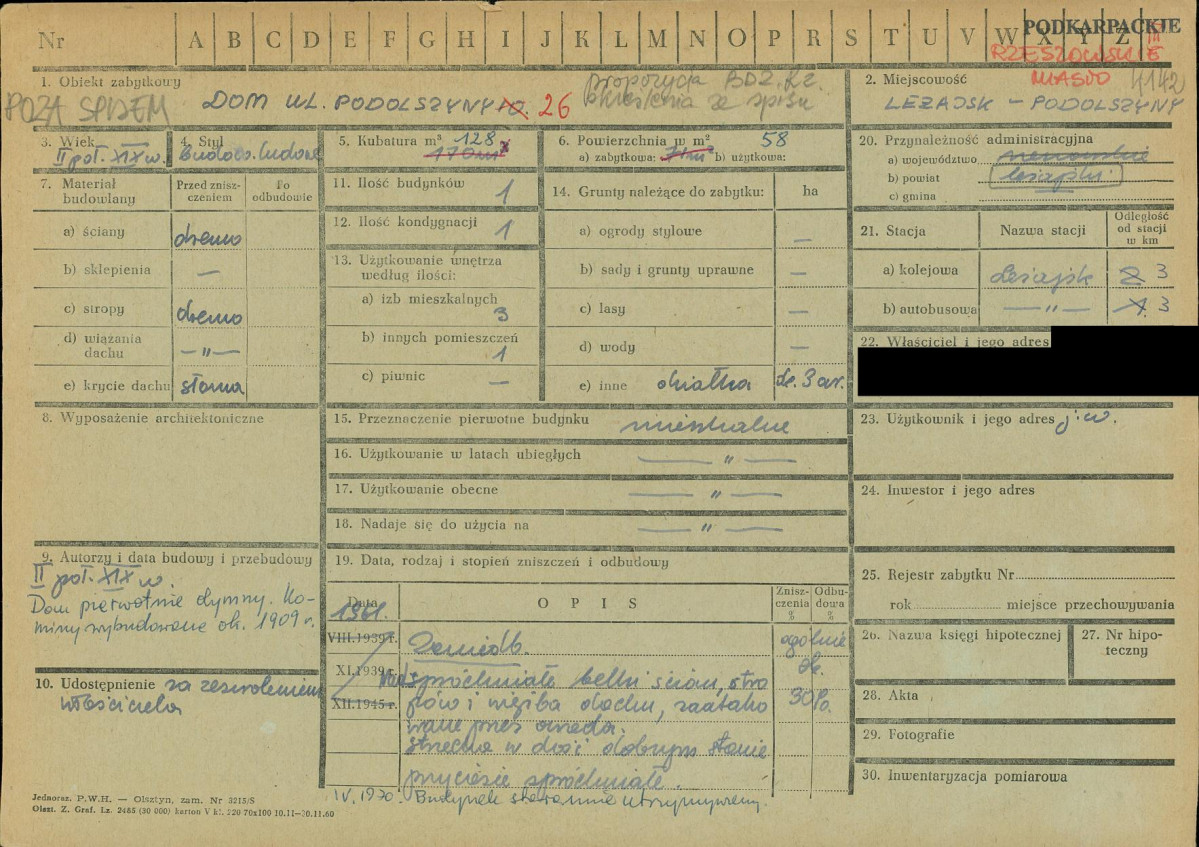 Nr A B C D E F G H I J K L M N O P R S T U V W X Y Z
PODKARPACKIE
RZESZOWSKIE
MIASTO 4142
1. Obiekt zabytkowy
POZA SPISEM DOM UL. PODOLSZYNY 26
propozycja BDZ. Rz.
skreślenia ze spisu
2. Miejscowość
LEŻAJSK – PODOLSZYNY
3. Wiek
II poł. XIX w.
4. Styl
Budown. ludowe
5. Kubatura m³ 128
170 m³
6. Powierzchnia w m² 58
a) zabytkowa: 71 m² b) użytkowa:
20. Przynależność administracyjna
a) województwo rzeszowskie
b) powiat leżajski
c) gmina
7. Materiał budowlany
Przed zniszczeniem
Po odbudowie
a) ściany drewno
b) sklepienia —
c) stropy drewno
d) wiązania dachu —"—
e) krycie dachu słoma
11. Ilość budynków 1
12. Ilość kondygnacji 1
13. Użytkowanie wnętrza
według ilości:
a) izb mieszkalnych 3
b) innych pomieszczeń 1
c) piwnic —
14. Grunty należące do zabytku: ha
a) ogrody stylowe —
b) sady i grunty uprawne —
c) lasy —
d) wody —
e) inne działka 3 ar.
21. Stacja
Nazwa stacji
Odległość
od stacji
w km
a) kolejowa Leżajsk 2 3
b) autobusowa —"— 1. 3
22. Właściciel i jego adres
8. Wyposażenie architektoniczne
15. Przeznaczenie pierwotne budynku mieszkalne
16. Użytkowanie w latach ubiegłych —"—
17. Użytkowanie obecne —"—
18. Nadaje się do użycia na —"—
23. Użytkownik i jego adres j.w.
24. Inwestor i jego adres
9. Autorzy i data budowy i przebudowy
II poł. XIX w.
Dom pierwotnie dymny. Ko-
miny wybudowane ok. 1909 r.
10. Udostępnienie za zezwoleniem
właściciela
19. Data, rodzaj i stopień zniszczeń i odbudowy
Data
OPIS
Zniszczenia %
Odbudowa %
1961.
VIII.1939 r.
XI.1939 r.
XII.1945 r.
Zaniedb. ogólnie
ok.
spróchniałe belki ścian, stro 30%.
pów i więźba dachu, zaatako
wane przez owada.
strzecha w dość dobrym stanie
przyciesie spróchniałe.
IV. 1970. Budynek starannie utrzymywany.
25. Rejestr zabytku Nr
rok miejsce przechowywania
26. Nazwa księgi hipotecznej
27. Nr hipoteczny
28. Akta
29. Fotografie
30. Inwentaryzacja pomiarowa
Jednoraz. P.W.H. — Olsztyn, zam. Nr 3215/S
Olszt. Z. Graf. Lz. 2485 (30 000) karton V kl. 220 70x100 10.11—30.11.60